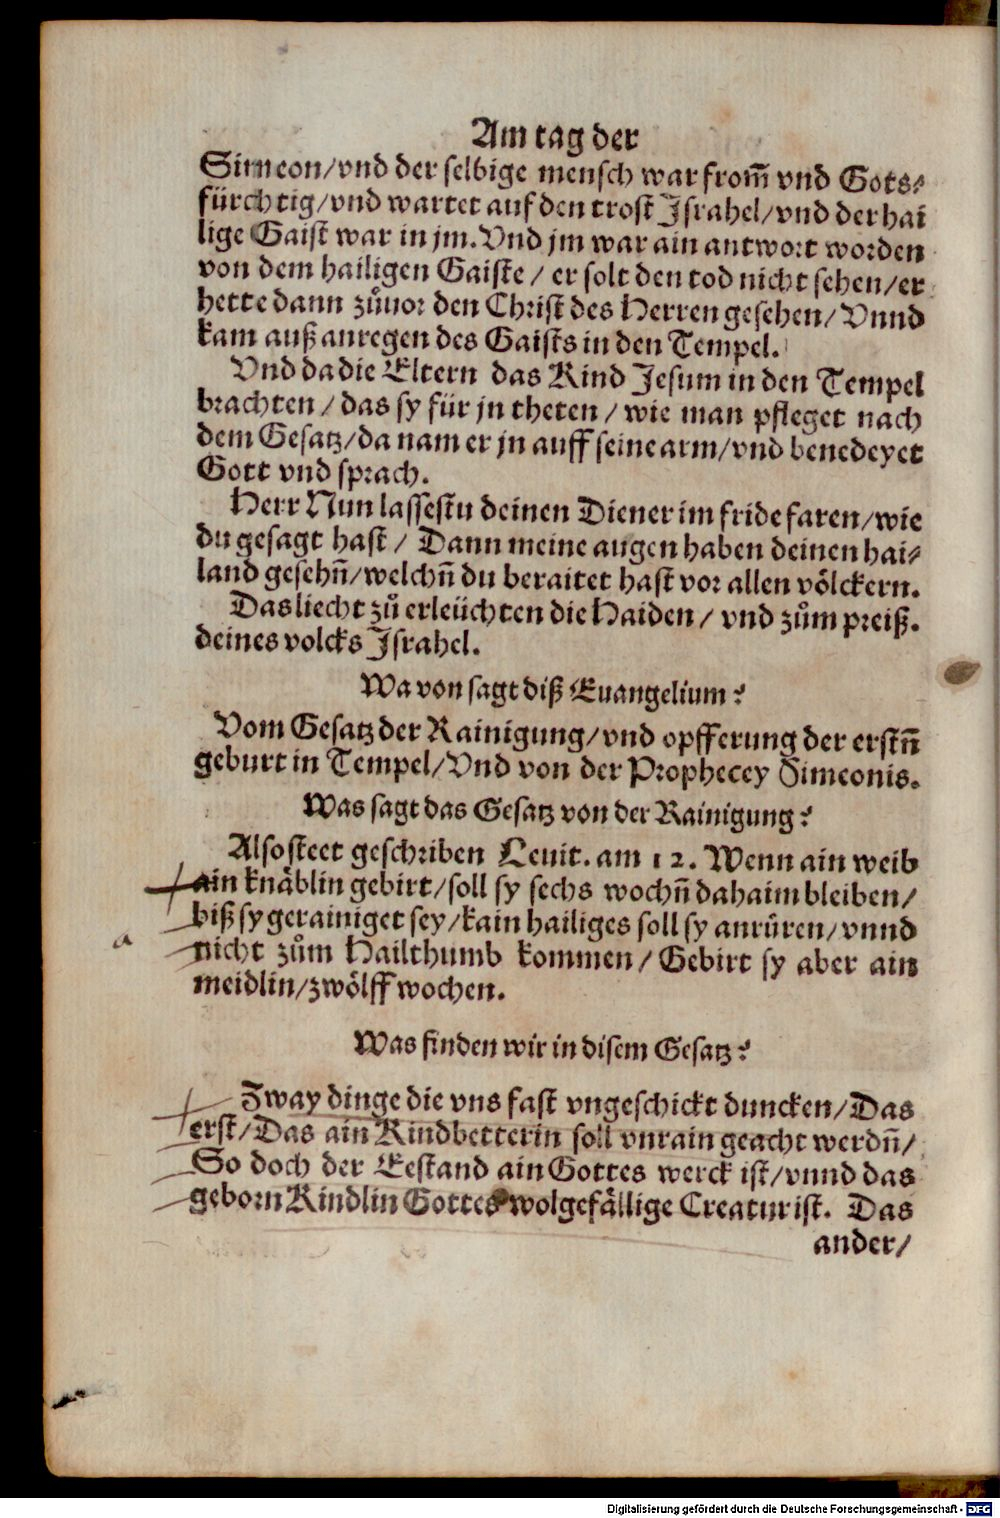 Am tag der
Simeon/vnd der selbige mensch war from̃ vnd Gots⸗
fürchtig/vnd wartet auf den trost Jsrahel/vnd der hai
lige Gaist war in jm. Vnd jm war ain antwort worden
von dem hailigen Gaiste / er solt den tod nicht sehen/er
hette dann zůuor den Christ des Herren gesehen/ Vnnd
kam auß anregen des Gaists in den Tempel.
Vnd da die Eltern das Kind Jesum in den Tempel
brachten / das sy für jn theten / wie man pfleget nach
dem Gesatz/da nam er jn auff seine arm/vnd benedeyet
Gott vnd sprach.
Herr Nun lassestu deinen Diener im fride faren/wie
du gesagt hast / Dann meine augen haben deinen hai⸗
land gesehñ/welchñ du beraitet hast vor allen völckern.
Das liecht zů erleüchten die Haiden / vnd zům preiß.
deines volcks Jsrahel.
Wa von sagt diß Euangelium?
Vom Gesatz der Rainigung/vnd opfferung der erstñ
geburt in Tempel/Vnd von der Prophecey Simeonis.
Was sagt das Gesatz von der Rainigung?
Also steet geschriben Leuit. am 12. Wenn ain weib
ain knäblin gebirt/soll sy sechs wochñ dahaim bleiben/
biß sy gerainiget sey/kain hailiges soll sy anrüren/vnnd
a nicht zům Hailthumb kommen/ Gebirt sy aber ain
meidlin/zwölff wochen.
Was finden wir in disem Gesatz?
Zway dinge die vns fast vngeschickt duncken/Das
erst/Das ain Kindbetterin soll vnrain geacht werdñ/
So doch der Eestand ain Gottes werck ist/vnnd das
geborn Kindlin Gottes wolgefällige Creatur ist. Das
ander/
Digitalisierung gefördert durch die Deutsche Forschungsgemeinschaft - DFG